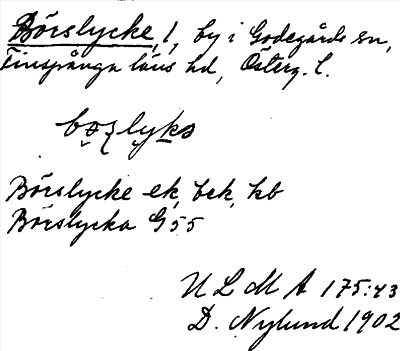 Börslycke, 1, by i Godegårds sn,
Finspånga läns hd, Österg. l.
Börslycke ek, bek, kb
Börslycka G 55
ULMA 175:43
D. Nylund 1902